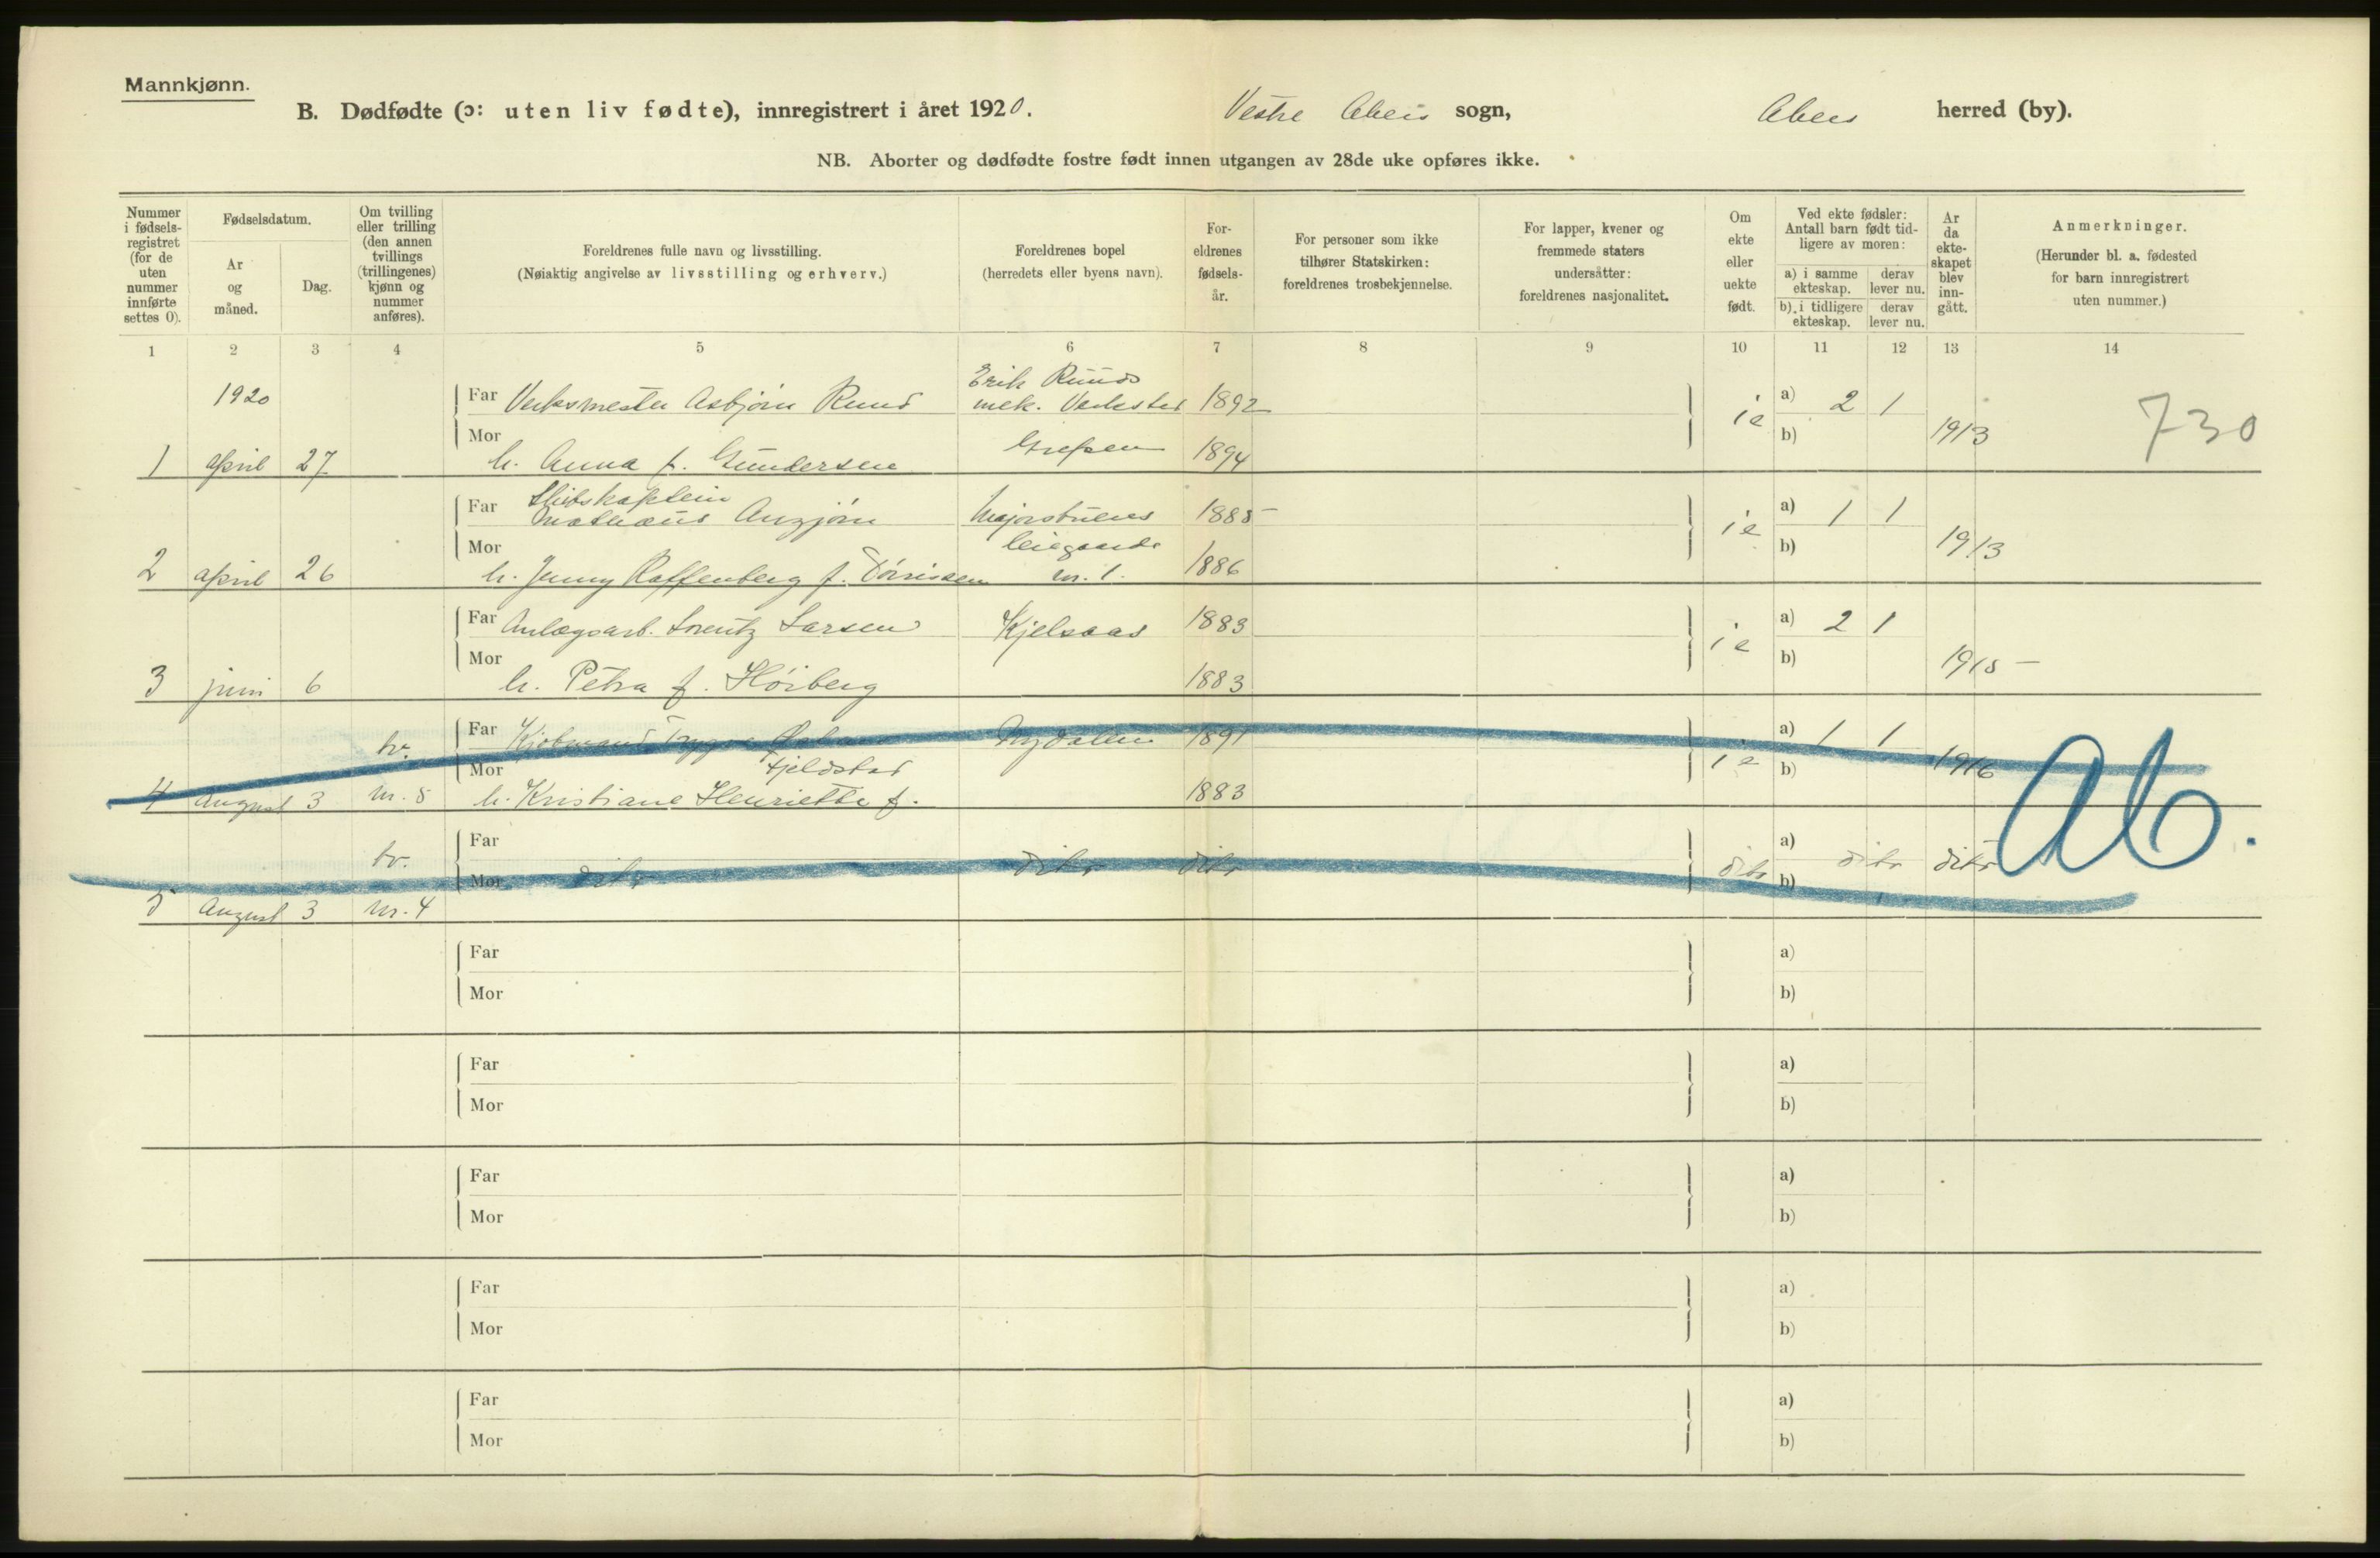 Mannkjønn.
B. Dødfødte (ɔ: uten liv fødte), innregistrert i året 1920. Vestre Akers sogn, Akers herred (by).
NB. Aborter og dødfødte fostre født innen utgangen av 28de uke opføres ikke.
Nummer i fødsels-registret (for de uten nummer innførte settes 0).
Fødselsdatum.
Ar og måned.
Dag.
Om tvilling eller trilling (den annen tvillings (trillingenes) kjønn og nummer anføres).
Foreldrenes fulle navn og livsstilling.
(Nøiaktig angivelse av livsstilling og erhverv.)
Foreldrenes bopel
(herredets eller byens navn).
For-eldrenes fødsels-år.
For personer som ikke tilhører Statskirken: foreldrenes trosbekjennelse.
For lapper, kvener og fremmede staters undersåtter: foreldrenes nasjonalitet.
Om ekte eller uekte født.
Ved ekte fødsler: Antall barn født tid-ligere av moren:
a) i samme ekteskap.
derav lever nu.
b) i tidligere ekteskap.
derav lever nu.
Ar da ekte-skapet blev inn-gått.
Anmerkninger.
(Herunder bl. a. fødested for barn innregistrert uten nummer.)
1 2 3 4 5 6 7 8 9 10 11 12 13 14
1920 Far Verksmester Asbjørn Ruud Erik Ruuds mek. Verksted 1892 ie a) 2 1
1 april 27 Mor h. Anna f. Gundersen Grefsen 1894 b) 1913 730
Far Skibskaptein Mathæus Anzjøn Majorstuens 1885 ie a) 1 1
2 april 26 Mor h. Jenny Raffenberg f. Tønnissen leiegaarde nr. 1. 1886 b) 1913
Far Anlægsarb. Lorentz Larsen Kjelsaas 1883 ie a) 2 1
3 juni 6 Mor h. Petra f. Høiberg 1883 b) 1915
tv. Far Kjøbmand Trygve Nydalen 1891 ie a) 1 1
4 August 3 nr. 5 Mor h. Kristiane Henriette f. Fjeldstad 1883 b) 1916 Ab.
tv. Far a)
5 August 3 nr. 4 Mor ditto ditto ditto ditto b) ditto ditto
Far a)
Mor b)
Far a)
Mor b)
Far a)
Mor b)
Far a)
Mor b)
Far a)
Mor b)